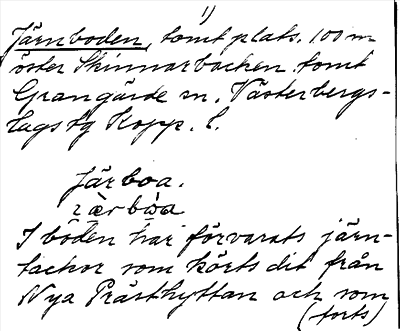 1)
Järnboden, tomt plats. 100 m
öster Skinnarbacken. tomt
Grangärde sn. Västerbergs-
lags tg Kopp. l.
Järboa.
I boden har förvarats järn-
tackor som körts dit från
Nya Prästhyttan och som
(forts)